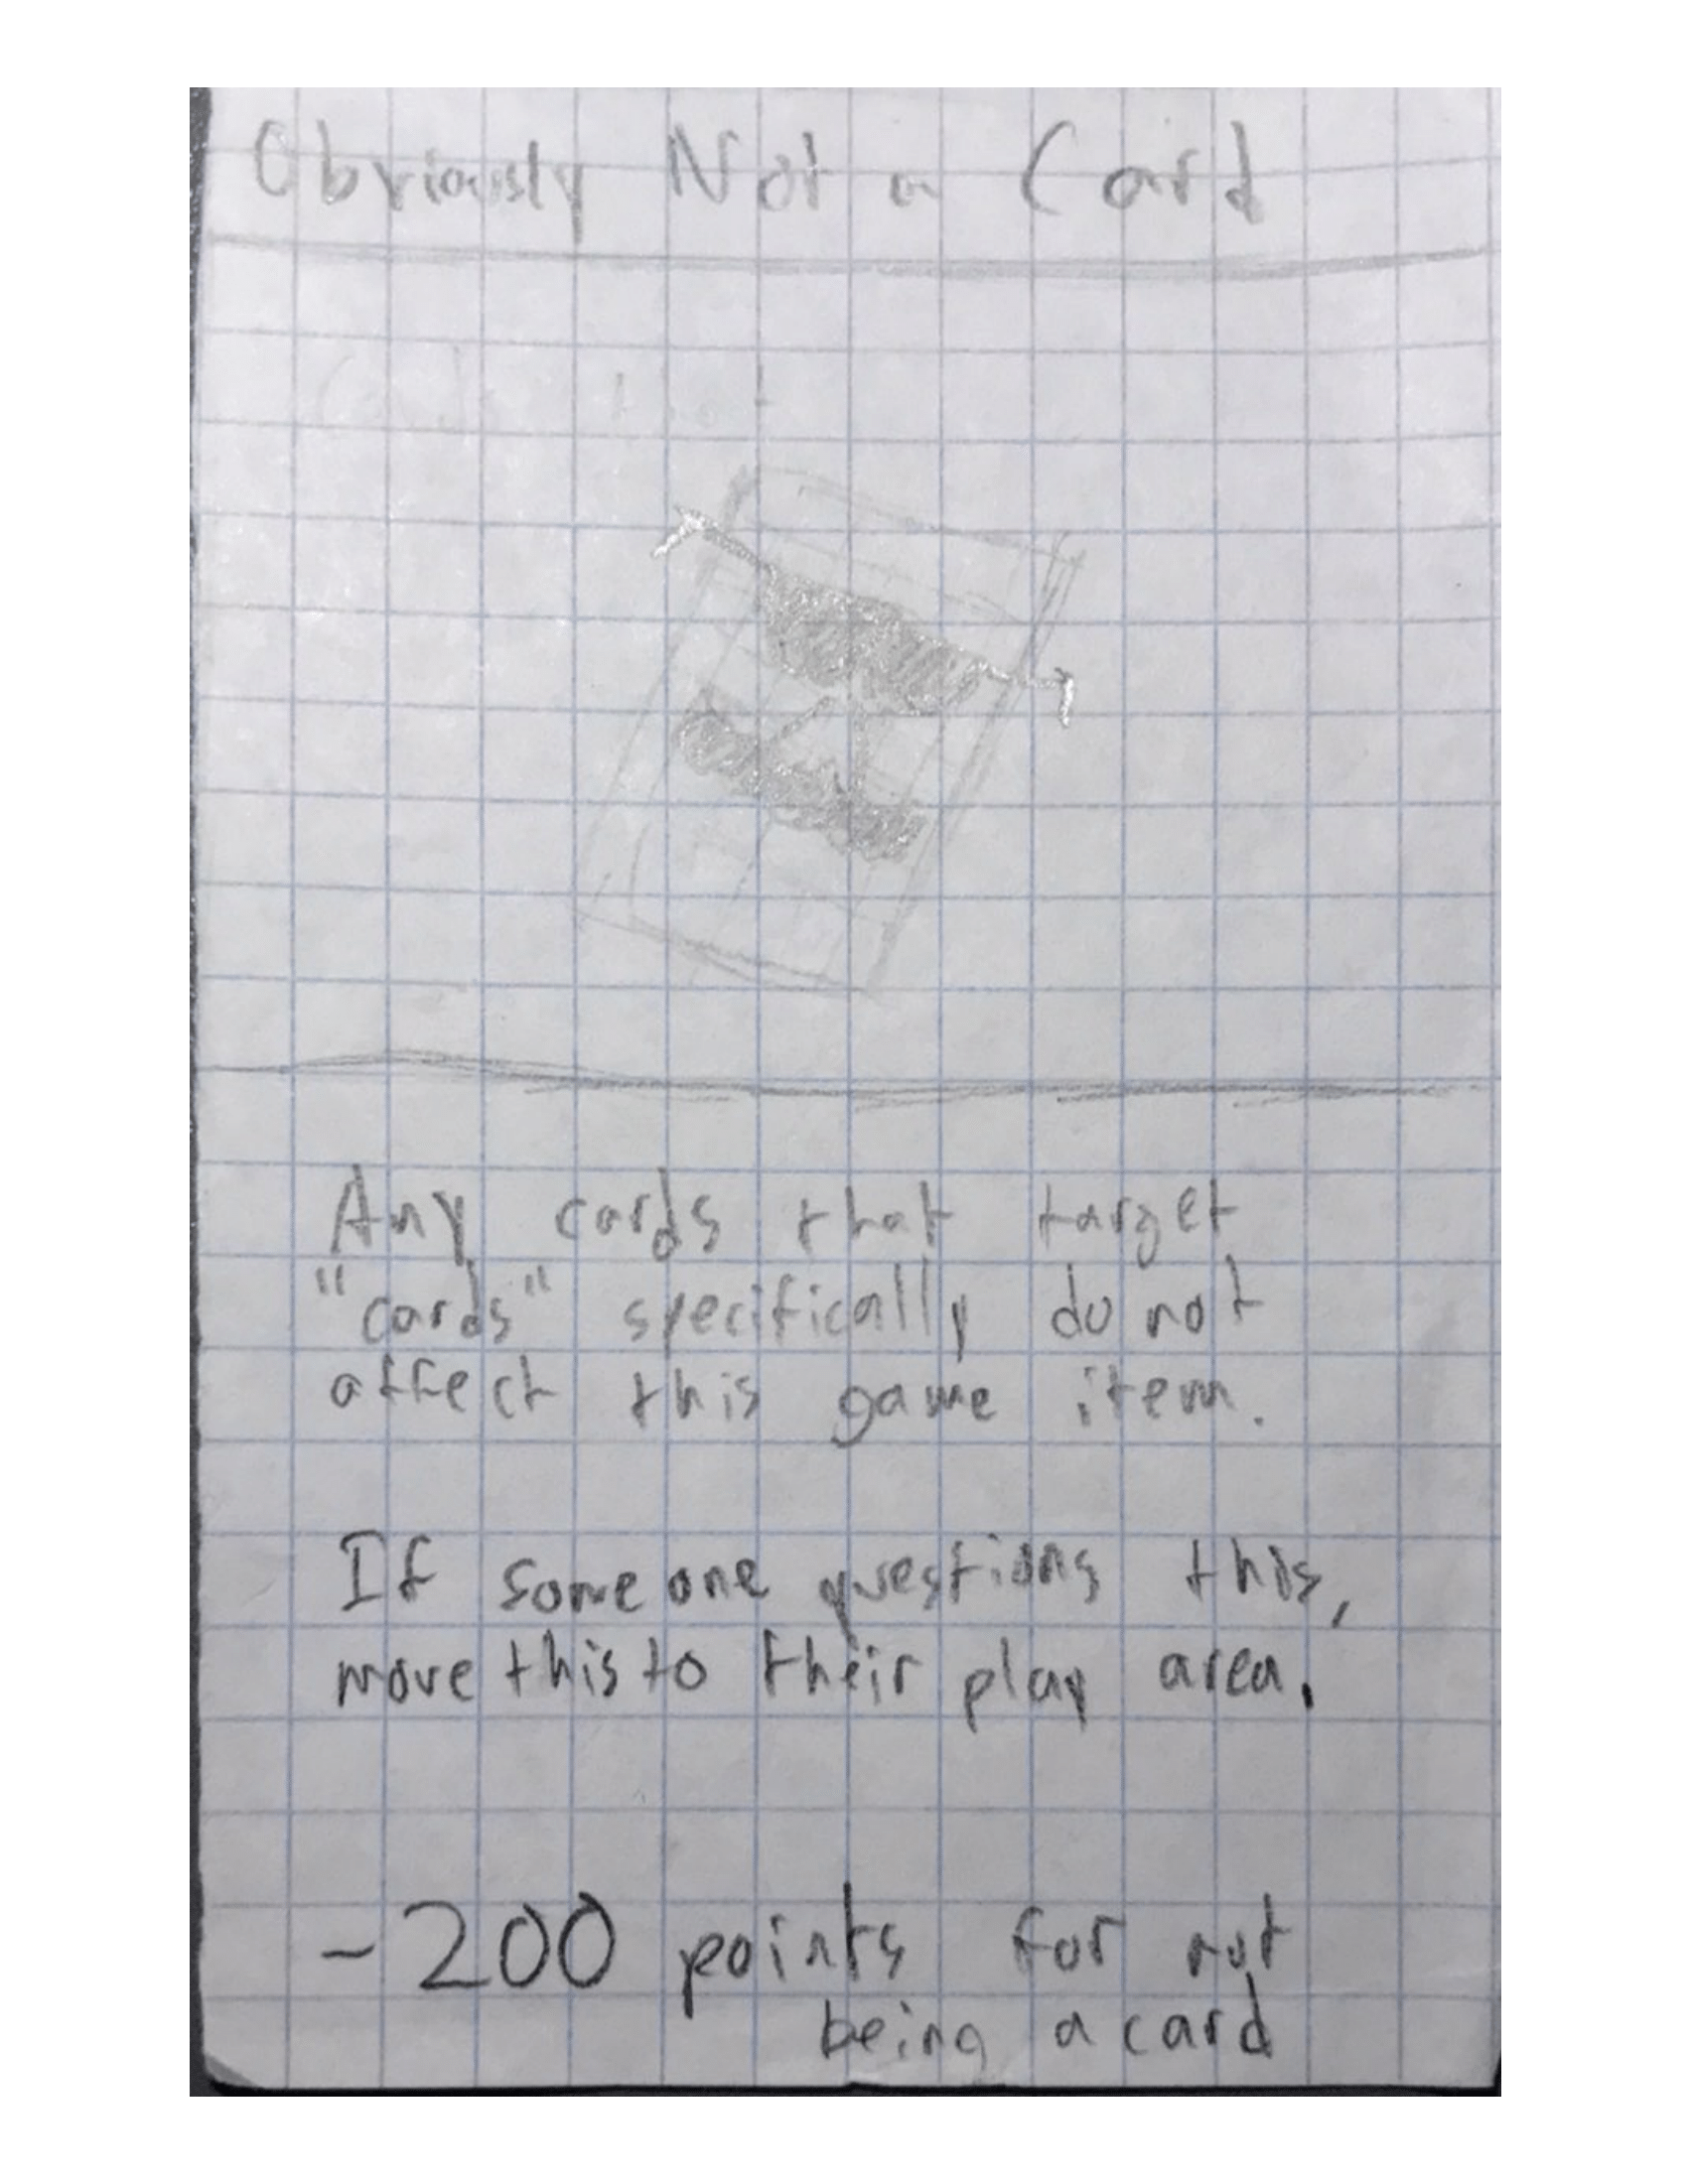 Obviously Not a Card
Any cards that target
"cards" specifically do not
affect this game item.
If someone questions this,
move this to their play area.
-200 points for not
being a card